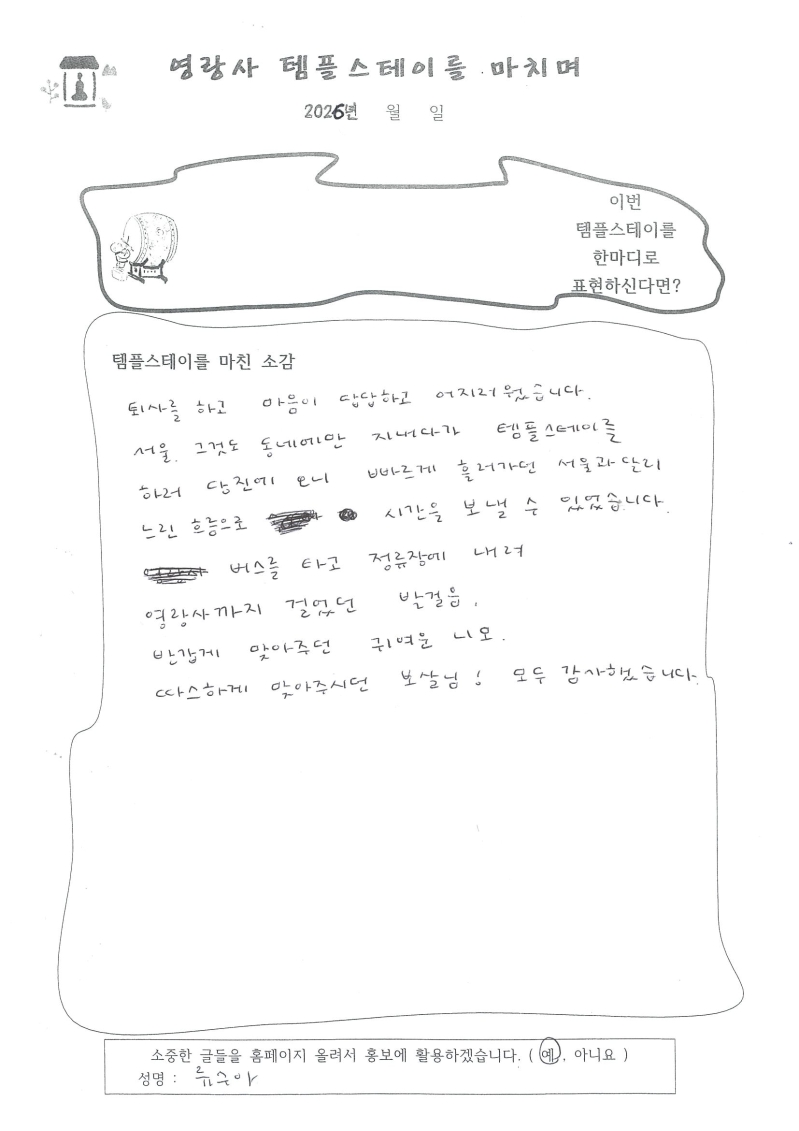 영랑사 템플스테이를 마치며
2025년 월 일
이번
템플스테이를
한마디로
표현하신다면?
템플스테이를 마친 소감
퇴사를 하고 마음이 답답하고 어지러웠습니다.
서울, 그것도 동네에만 지내다가 템플스테이를
하러 당진에 오니 빠르게 흘러가던 서울과 달리
느린 흐름으로 시간을 보낼 수 있었습니다.
버스를 타고 정류장에 내려
영랑사까지 걸었던 발걸음,
반갑게 맞아주던 귀여운 니모.
따스하게 맞아주시던 보살님! 모두 감사했습니다.
소중한 글들을 홈페이지 올려서 홍보에 활용하겠습니다. ( 예, 아니요 )
성명 : 류수아